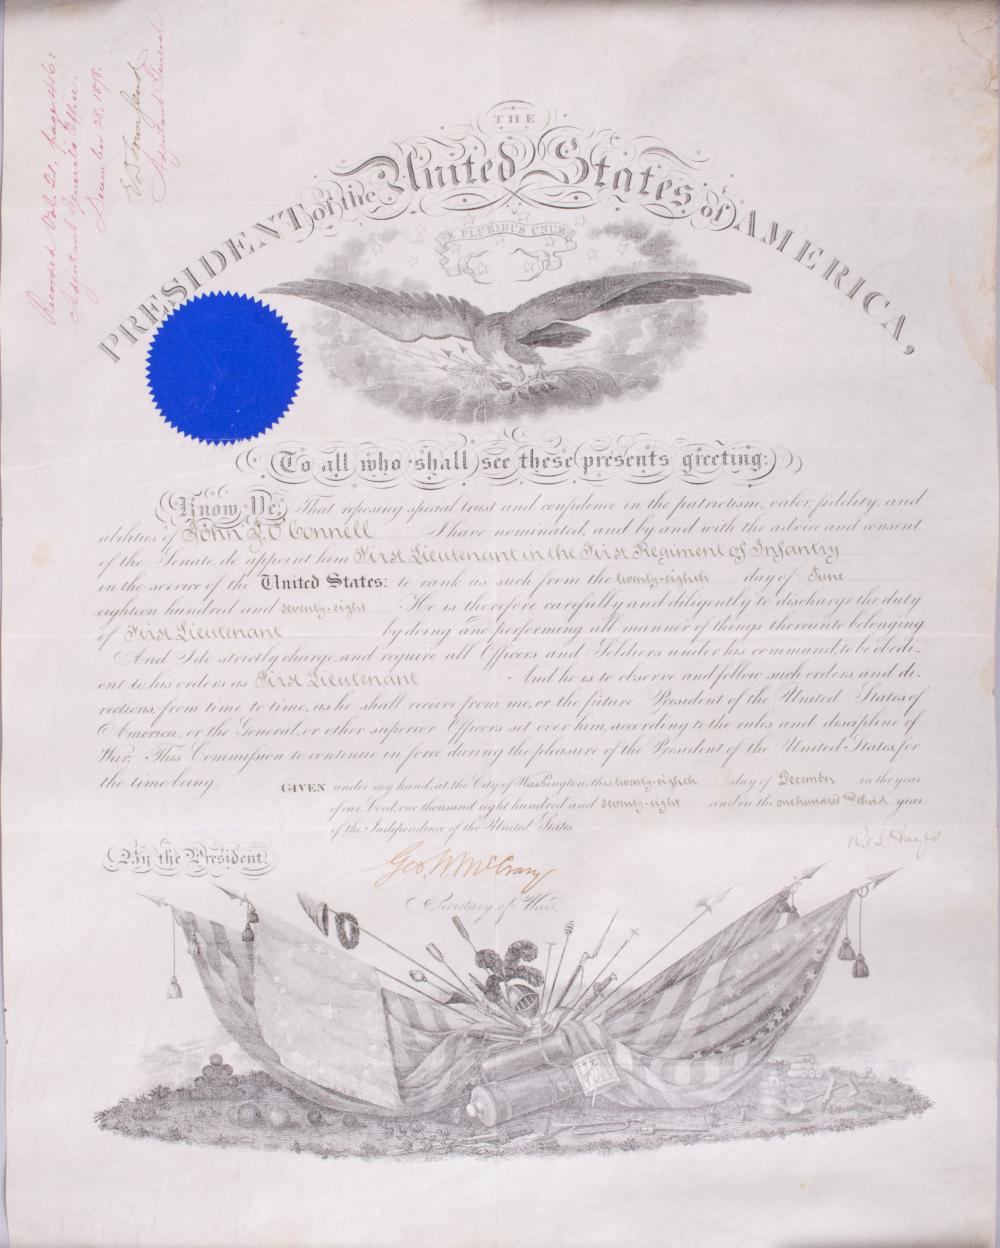 Recorded Vol. 21, page 446:
Adjutant General's Office,
December 28, 1878.
E D Townsend
Adjutant General
THE
PRESIDENT of the United States of AMERICA,
E PLURIBUS UNUM
To all who shall see these presents greeting:
Know Ye, That reposing special trust and confidence in the patriotism, valor, fidelity, and
abilities of John J. O'Connell I have nominated, and by and with the advice and consent
of the Senate, do appoint him First Lieutenant in the First Regiment of Infantry
in the service of the United States: to rank as such from the twenty-eighth day of June
eighteen hundred and seventy-eight He is therefore carefully and diligently to discharge the duty
of First Lieutenant by doing and performing all manner of things thereunto belonging
And I do strictly charge, and require all Officers and Soldiers under his command, to be obedi-
ent to his orders as First Lieutenant And he is to observe and follow such orders, and di-
rections, from time to time, as he shall receive from me, or the future President of the United States of
America, or the General, or other superior Officers set over him, according to the rules and discipline of
War. This Commission to continue in force during the pleasure of the President of the United States, for
the time being.
GIVEN under my hand, at the City of Washington, this twenty-eighth day of December in the year
of our Lord, one thousand eight hundred and seventy-eight and in the one hundred and third year
of the Independence of the United States.
R. B. Hayes
By the President:
Geo. W. McCrary
Secretary of War.